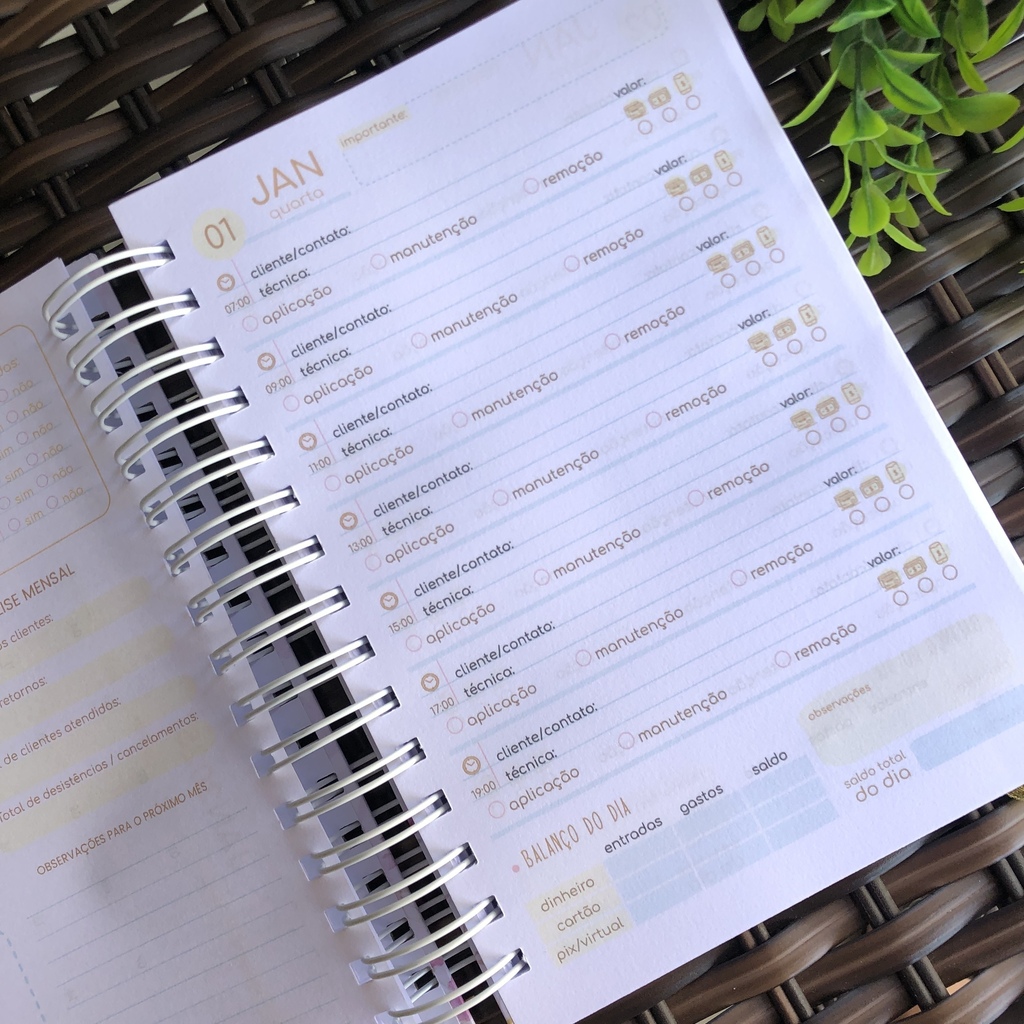 não
não
não
sim não
sim não
sim não
LISE MENSAL
os clientes:
retornos:
de clientes atendidos:
Total de desistências / cancelamentos:
OBSERVAÇÕES PARA O PRÓXIMO MÊS
01 JAN
quarta
importante:
07:00 cliente/contato: valor:
técnica:
aplicação manutenção remoção
09:00 cliente/contato: valor:
técnica:
aplicação manutenção remoção
11:00 cliente/contato: valor:
técnica:
aplicação manutenção remoção
13:00 cliente/contato: valor:
técnica:
aplicação manutenção remoção
15:00 cliente/contato: valor:
técnica:
aplicação manutenção remoção
17:00 cliente/contato: valor:
técnica:
aplicação manutenção remoção
19:00 cliente/contato: valor:
técnica:
aplicação manutenção remoção
BALANÇO DO DIA
entradas gastos saldo
dinheiro
cartão
pix/virtual
observações
saldo total
do dia